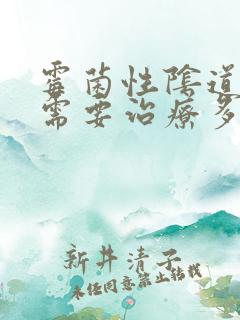 霉菌性陰道
需要治療多
新井清子
未经同意禁止转载